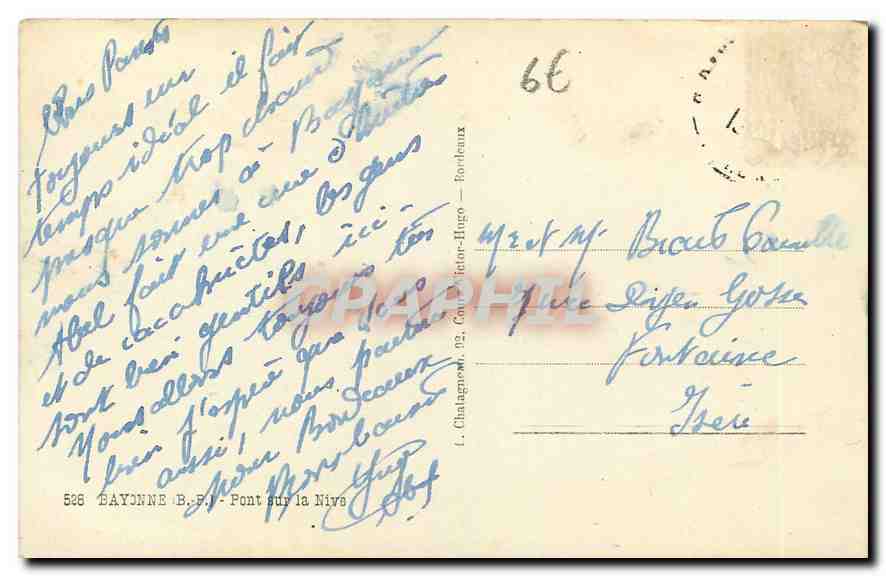 Chers Parents
toujours un
temps idéal il fait
presque trop chaud
nous sommes à Bayonne
Abel fait une cure d'huitres
et de cacahuètes, les gens
sont bien gentils ici.
Nous allons toujours très
bien j'espère que vous
aussi, nous partons
pour Bordeaux
Bons baisers
Abel
6€
Mr et Mme Camille
Gosse
Fontaine
Isère
1. Chatagneau, 92, Cours Victor-Hugo — Bordeaux
CPAPHIL
528 BAYONNE (B.-P.) - Pont sur la Nive